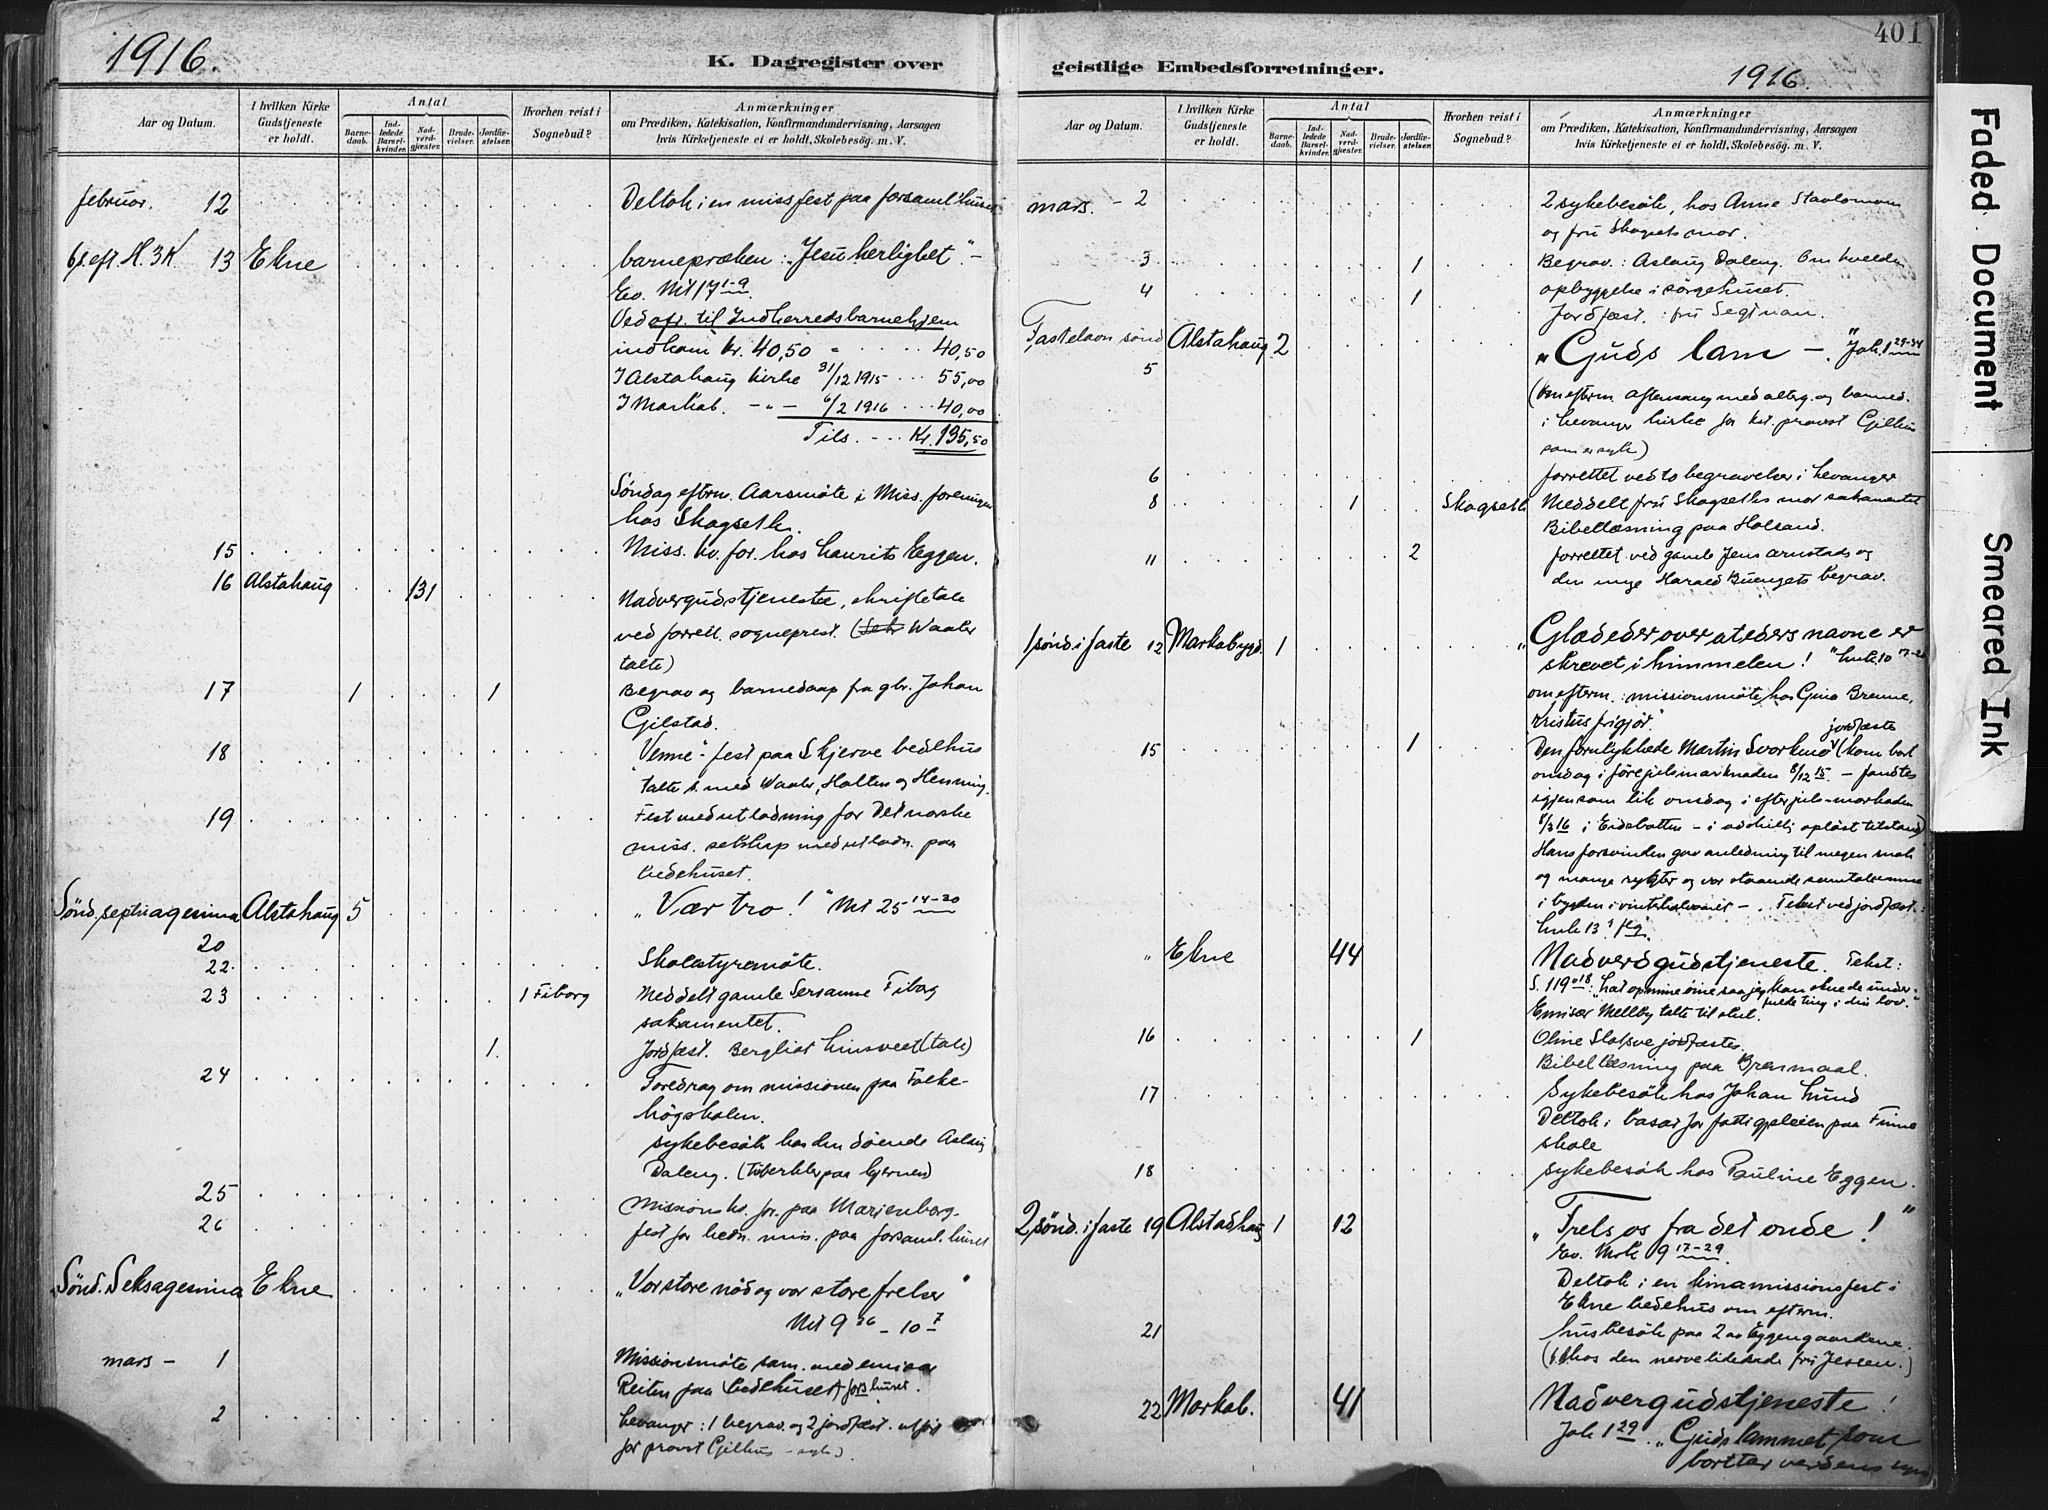 1916.
K. Dagregister over
Aar og Datum.
I hvilken Kirke Gudstjeneste er holdt.
Antal
Barnedaab.
Indledede Barselkvinder.
Nadverdgjæster.
Brudevielser.
Jordfæstelser.
Hvorhen reist i Sognebud?
Anmærkninger
om Prædiken, Katekisation, Konfirmandundervisning, Aarsagen
hvis Kirketjeneste ei er holdt, Skolebesøg. m. V.
februar. 12 Deltok i en missfest paa forsaml.huset
6 s. eft. H. 3 K. 13 Ekne barnepræken: "Jesu herlighet". -
Ev. Mt 17 1-9.
Ved ofr. til Indherreds barnehjem
indkom kr. 40,50 " 40,50
I Alstahaug kirke 31/12 1915 55,00
I Markab. - " - 6/2 1916 40,00
Tils. Kr. 135,50
Søndag efterm. Aarsmöte i Miss. foreningen
hos Skogseth.
15 Miss. kv. for. hos Laurits Eggen.
16 Alstahaug 131 Nadvergudstjeneste, skriftetale
ved forrett. sogneprest. (Waaler
talte)
17 1 1 Begrav og barnedaap fra gbr. Johan
Gilstad.
18 "Venne"-fest paa Skjerve bedehus
talte s. med Waaler, Holten og Henning.
19 Fest med utlodning for Det norske
miss. selskap med utlodn. paa
bedehuset.
Sönd. septuagesima Alstahaug 5 "Vær tro!" Mt 25 14-30
20
22. Skolestyremöte.
23 1 Fiborg Meddelt gamle Serianne Fiborg
sakramentet.
1. Jordfæst. Bergliot (tale)
24 Foredrag om missionen paa Folke-
högskolen.
sykebesök hos den döende Aslaug
Daleng. (tuberkler paa hjernen)
25 Missionskv. for. paa Marienborg.
26 fest for hedn. mis. paa forsaml. huset
Sönd. Seksagesima Ekne "Vor store nöd og vor store frelser"
Mt 9 36 - 10 7
mars - 1 Missionsmöte sam. med emissær
Reiten paa (bedehuset) forshuset.
2 Levanger: 1 begrav. og 2 jordfæst. utfört
for provst Gjelhus - syk)
401
geistlige Embedsforretninger.
1916.
Aar og Datum.
I hvilken Kirke Gudstjeneste er holdt.
Antal
Barnedaab.
Indledede Barselkvinder.
Nadverdgjæster.
Brudevielser.
Jordfæstelser.
Hvorhen reist i Sognebud?
Anmærkninger
om Prædiken, Katekisation, Konfirmandundervisning, Aarsagen
hvis Kirketjeneste ei er holdt, Skolebesøg. m. V.
mars. - 2 2 sykebesök, hos Anne
og fru Skogseths mor.
3 1 Begrav.: Aslaug Daleng. Om kvelden
4 1 opbyggelse i sörgehuset.
Jordfæst.: fru Segtnan.
Fastelavn sönd Alstahaug 2 "Guds lam - ." Joh. 1 29-34
5
(om efterm. aftensang med alterg. og barned.
i Levanger kirke for kst. provst Gjelhus
som er syk)
6 forrettet ved to begravelser i Levanger
8 1 Skogseth Meddelt fru Skogseths mor sakramentet
Bibellæsning paa Holsand.
11 2 forrettet ved gamle Jens Arnstads og
den unge Harald Buengets begrav.
1 sönd i faste 12 Markabygd. 1 "Glæd eder over at eders navne er
skrevet i himmelen!" Luk. 10 17-20
om efterm.: missionsmöte hos Gina Brenne,
"Kristus frigjör"
15 1 Den forulykkede Martin Svorkmo jordfæste (kom bort
onsdag i förejulsmarknaden 8/12 15. - fandtes
igjen som lik onsdag i efterjuls-markaden
8/3 16 i Eidsbotten - i adskillig oplöst tilstand)
Hans forsvinden gav anledning til megen snak
og mange rykter og var staaende samtaleemne
i bygden i vinterhalvaaret - . Tekst ved jordfæst.:
Luk 13 1 flg.
" Ekne 44 Nadverdgudstjeneste. Tekst:
S. 119 18: "Lat op mine öine saa jeg kan skue de under-
fulde ting i din lov."
Emisær Mellby talte til slut.
16 1 Oline jordfæstes.
Bibellæsning paa
17 Sykebesök hos Johan Lund
Deltok i basar for fattigpleien paa Finne
skole
18 sykebesök hos Pauline Eggen.
2 sönd. i faste 19 Alstadhaug 1 12 "Frels os fra det onde!"
Ev. Mrk 9 17-29
Deltok i en kinamissionsfest i
Ekne bedehus om efterm.
21 husbesök paa 2 av Eggengaardene.
(hos den nervelidende fru Jessen.)
22 Markab. 41 Nadvergudstjeneste!
Joh 1 29. "Guds lammet som
bortter verdens
Faded Document
Smeared Ink